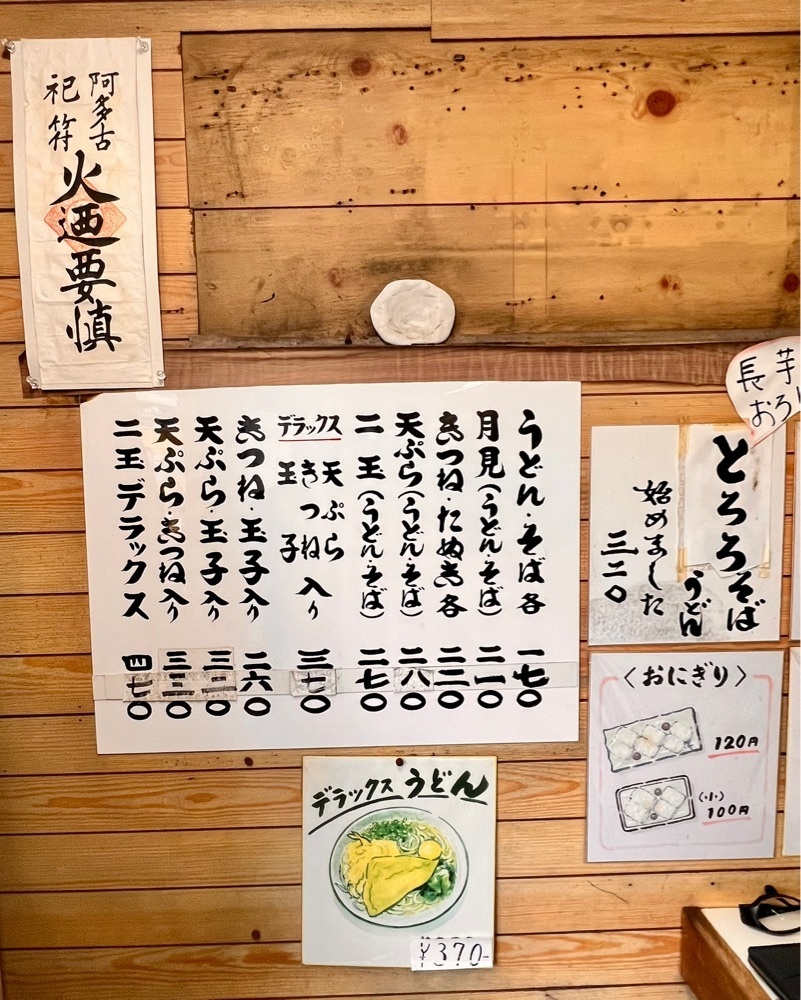 阿多古
祀符
火迺要慎
うどん・そば各 一七〇
月見(うどん・そば) 二一〇
きつね・たぬき各 二二〇
天ぷら(うどん・そば) 二八〇
二玉(うどん・そば) 二七〇
デラックス
天ぷら
きつね入り 三七〇
玉子
きつね・玉子入り 二六〇
天ぷら・玉子入り 三二〇
天ぷら・きつね入り 三三〇
二玉デラックス 四七〇
長芋
おろし
とろろそば
うどん
始めました
三二〇
〈おにぎり〉
120円
(小)
100円
デラックスうどん
¥370-